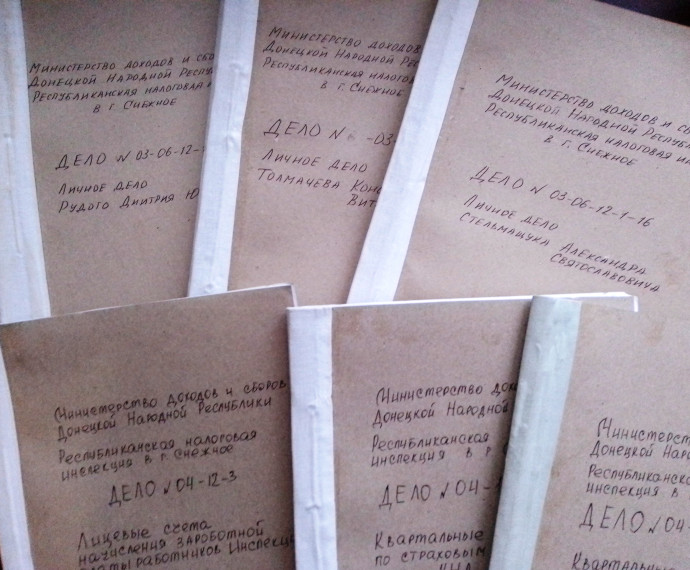 Министерство доходов и сбо
Донецкой Народной Респу
Республиканская налоговая и
в г. Снежное
ДЕЛО N 03-06-12-
Личное дело
Рудого Дмитрия Ю
Министерство доходов
Донецкой Народной Рес
Республиканская налогов
в г. Снежное
ДЕЛО N -03-
Личное дело
Толмачева Конс
Вит
Министерство доходов и сб
Донецкой Народной Республи
Республиканская налоговая ин
в г. Снежное
ДЕЛО N 03-06-12-1-16
Личное дело
Стельмащука Александра
Святославовича
Министерство доходов и сборов
Донецкой Народной Республики
Республиканская налоговая
инспекция в г. Снежное
ДЕЛО N 04-12-3
Лицевые счета
начисления заработной
платы работников Инспекц
Министерство дох
Донецкой Народной
Республиканская
инспекция в г. С
ДЕЛО N 04-
Квартальные
по страховым
Министерст
Донецкой Нар
Республиканск
инспекция в
ДЕЛО N 04-
Квартальные